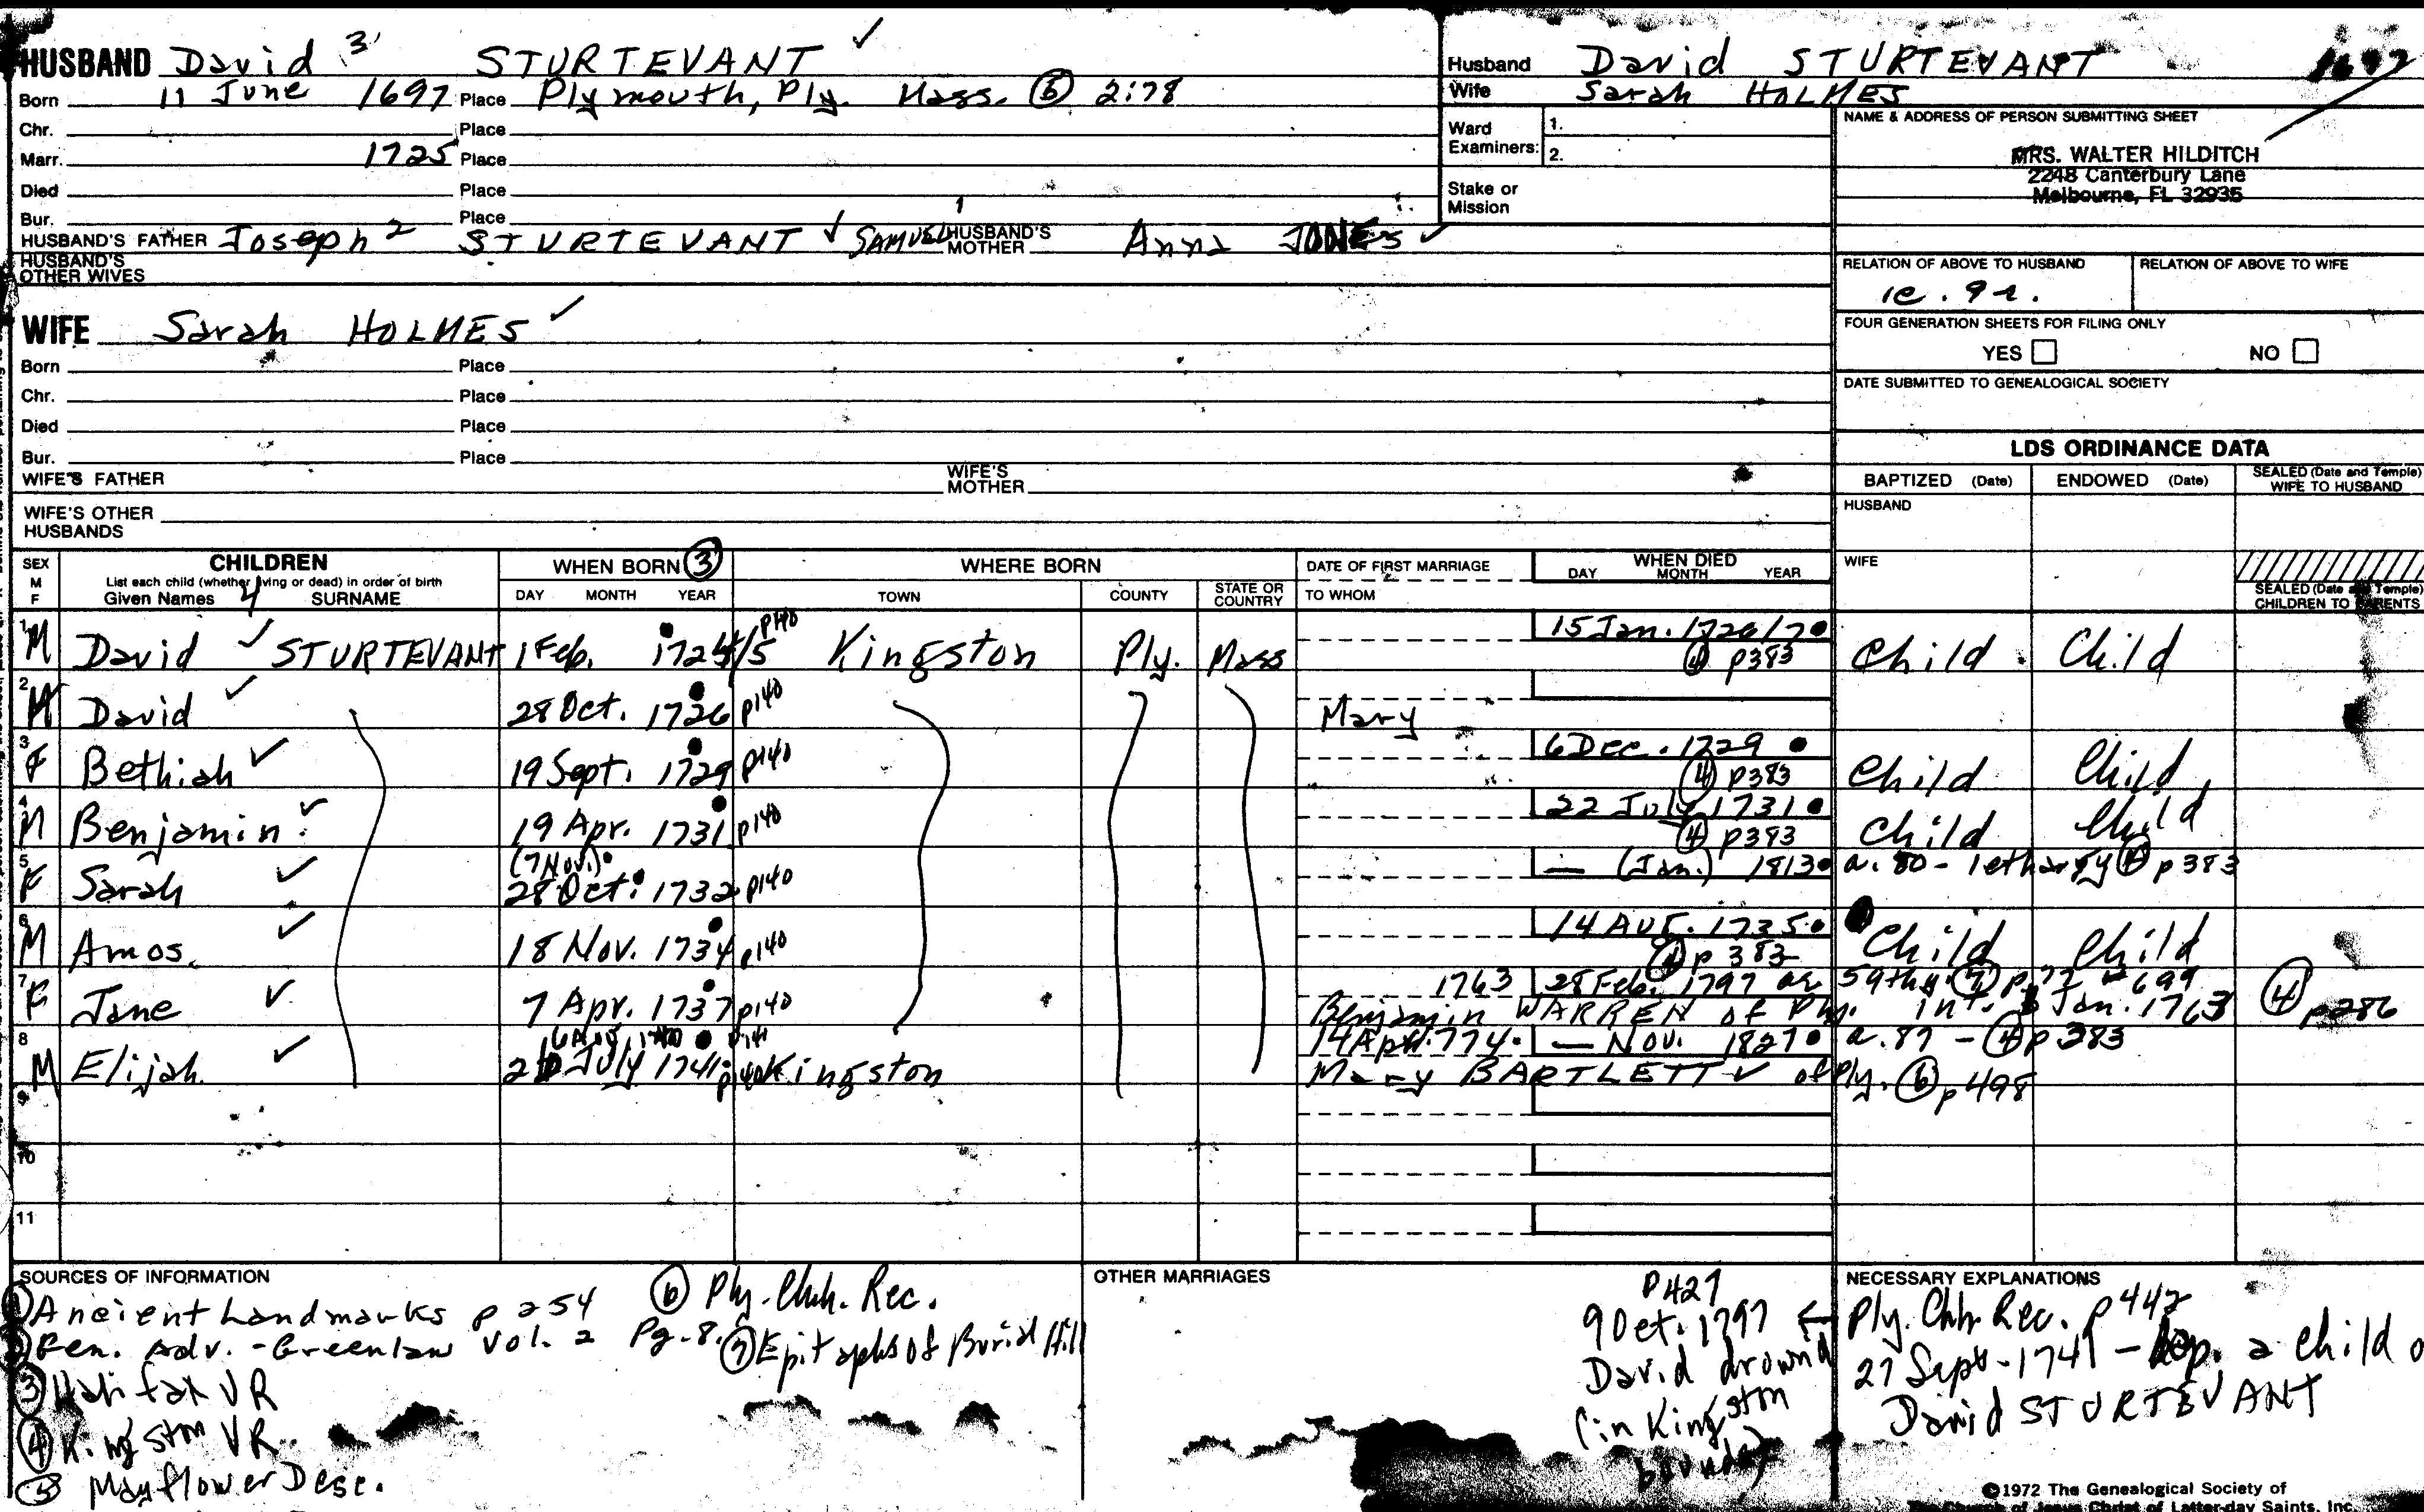 HUSBAND David 3 STURTEVANT ✓
Born 11 June 1697 Place Plymouth, Ply. Mass. ⑥ 2:78
Chr. Place
Marr. 1725 Place
Died Place
Bur. Place
HUSBAND'S FATHER Joseph 2 STURTEVANT ✓ SAMUEL 1 HUSBAND'S MOTHER Anna JONES ✓
HUSBAND'S OTHER WIVES
WIFE Sarah HOLMES ✓
Born Place
Chr. Place
Died Place
Bur. Place
WIFE'S FATHER WIFE'S MOTHER
WIFE'S OTHER HUSBANDS
Husband David STURTEVANT 1697
Wife Sarah HOLMES
Ward Examiners: 1.
2.
Stake or Mission
NAME & ADDRESS OF PERSON SUBMITTING SHEET
MRS. WALTER HILDITCH
2248 Canterbury Lane
Melbourne, FL 32935
RELATION OF ABOVE TO HUSBAND RELATION OF ABOVE TO WIFE
FOUR GENERATION SHEETS FOR FILING ONLY
YES NO
DATE SUBMITTED TO GENEALOGICAL SOCIETY
LDS ORDINANCE DATA
BAPTIZED (Date) ENDOWED (Date) SEALED (Date and Temple) WIFE TO HUSBAND
HUSBAND
WIFE
SEALED (Date and Temple) CHILDREN TO PARENTS
SEX M F CHILDREN List each child (whether living or dead) in order of birth Given Names 4 SURNAME WHEN BORN ③ DAY MONTH YEAR WHERE BORN TOWN COUNTY STATE OR COUNTRY DATE OF FIRST MARRIAGE TO WHOM WHEN DIED DAY MONTH YEAR
1 M David ✓ STURTEVANT 1 Feb. 1724/5 p140 Kingston Ply. Mass 15 Jan. 1726/7 ④ p383 Child Child
2 M David ✓ 28 Oct. 1726 p140 Mary
3 F Bethiah ✓ 19 Sept. 1729 p140 6 Dec. 1729 ④ p383 Child Child
4 M Benjamin ✓ 19 Apr. 1731 p140 22 July 1731 ④ p383 Child Child
5 F Sarah ✓ (7 Nov.) 28 Oct. 1732 p140 — (Jan.) 1813 a. 80 - lethargy ④ p383
6 M Amos ✓ 18 Nov. 1734 p140 14 Aug. 1735 ④ p383 Child Child
7 F Jane ✓ 7 Apr. 1737 p140 1763 28 Feb. 1797 ae 59thy ⑦ p77 #699
Benjamin WARREN of Ply. int. Jan. 1763 ④ p286
8 M Elijah ✓ July 1741 p140 Kingston 14 Apr. 1774 — Nov. 1827 a. 87 - ④ p383
Mary BARTLETT ✓ of Ply. ⑥ p498
9
10
11
SOURCES OF INFORMATION
① Ancient Landmarks p 254
② Gen. Adv. - Greenlaw Vol. 2 Pg. 8.
③ Halifax VR
④ Kingston VR.
⑤ Mayflower Desc.
⑥ Ply. Chh. Rec.
⑦ Epitaphs of Burial Hill
OTHER MARRIAGES
p427
9 Oct. 1797 ←
David drownd
(in Kingston
bounds)
NECESSARY EXPLANATIONS
Ply. Chh Rec. p442
27 Sept. 1741 - bap. a child o
David STURTEVANT
©1972 The Genealogical Society of
The Church of Jesus Christ of Latter-day Saints, Inc.